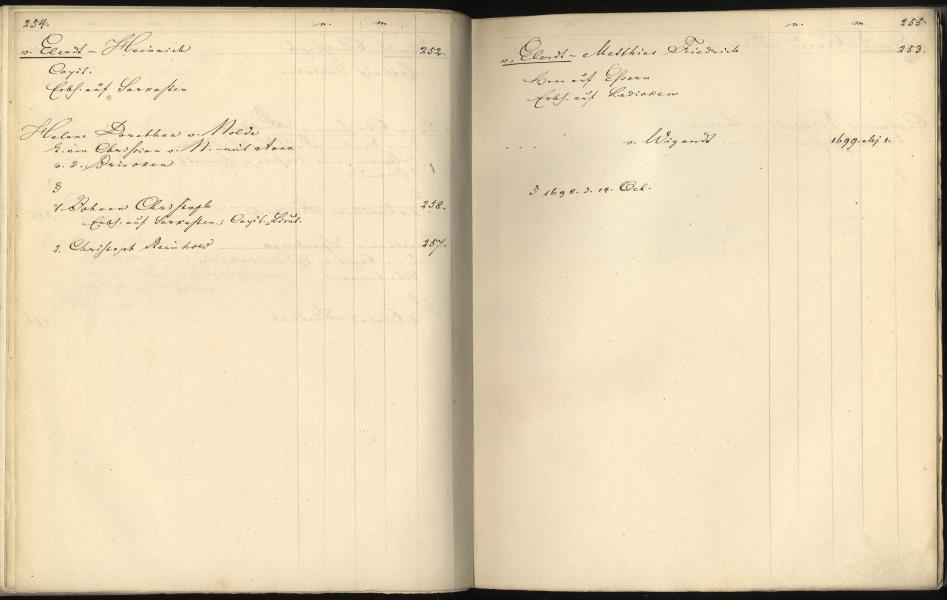 254. n. m.
v. Elerdt - Heinrich 252.
Capit.
Erbh. auf Sarkosten
Helene Dorothea v. Nolde
v. Christian v. N. mit Anna
v. d. Brincken
3
1. Johann Christoph 258.
Erbh. auf Sarkosten; Capit.-Lieut.
2. Christoph Reinhold 257.
n. m. 255.
v. Elerdt - Matthias Friedrich 253.
Herr auf Essern
Erbh. auf
v. Wigandt 1699. 1.
1698. d. 14. Oct.